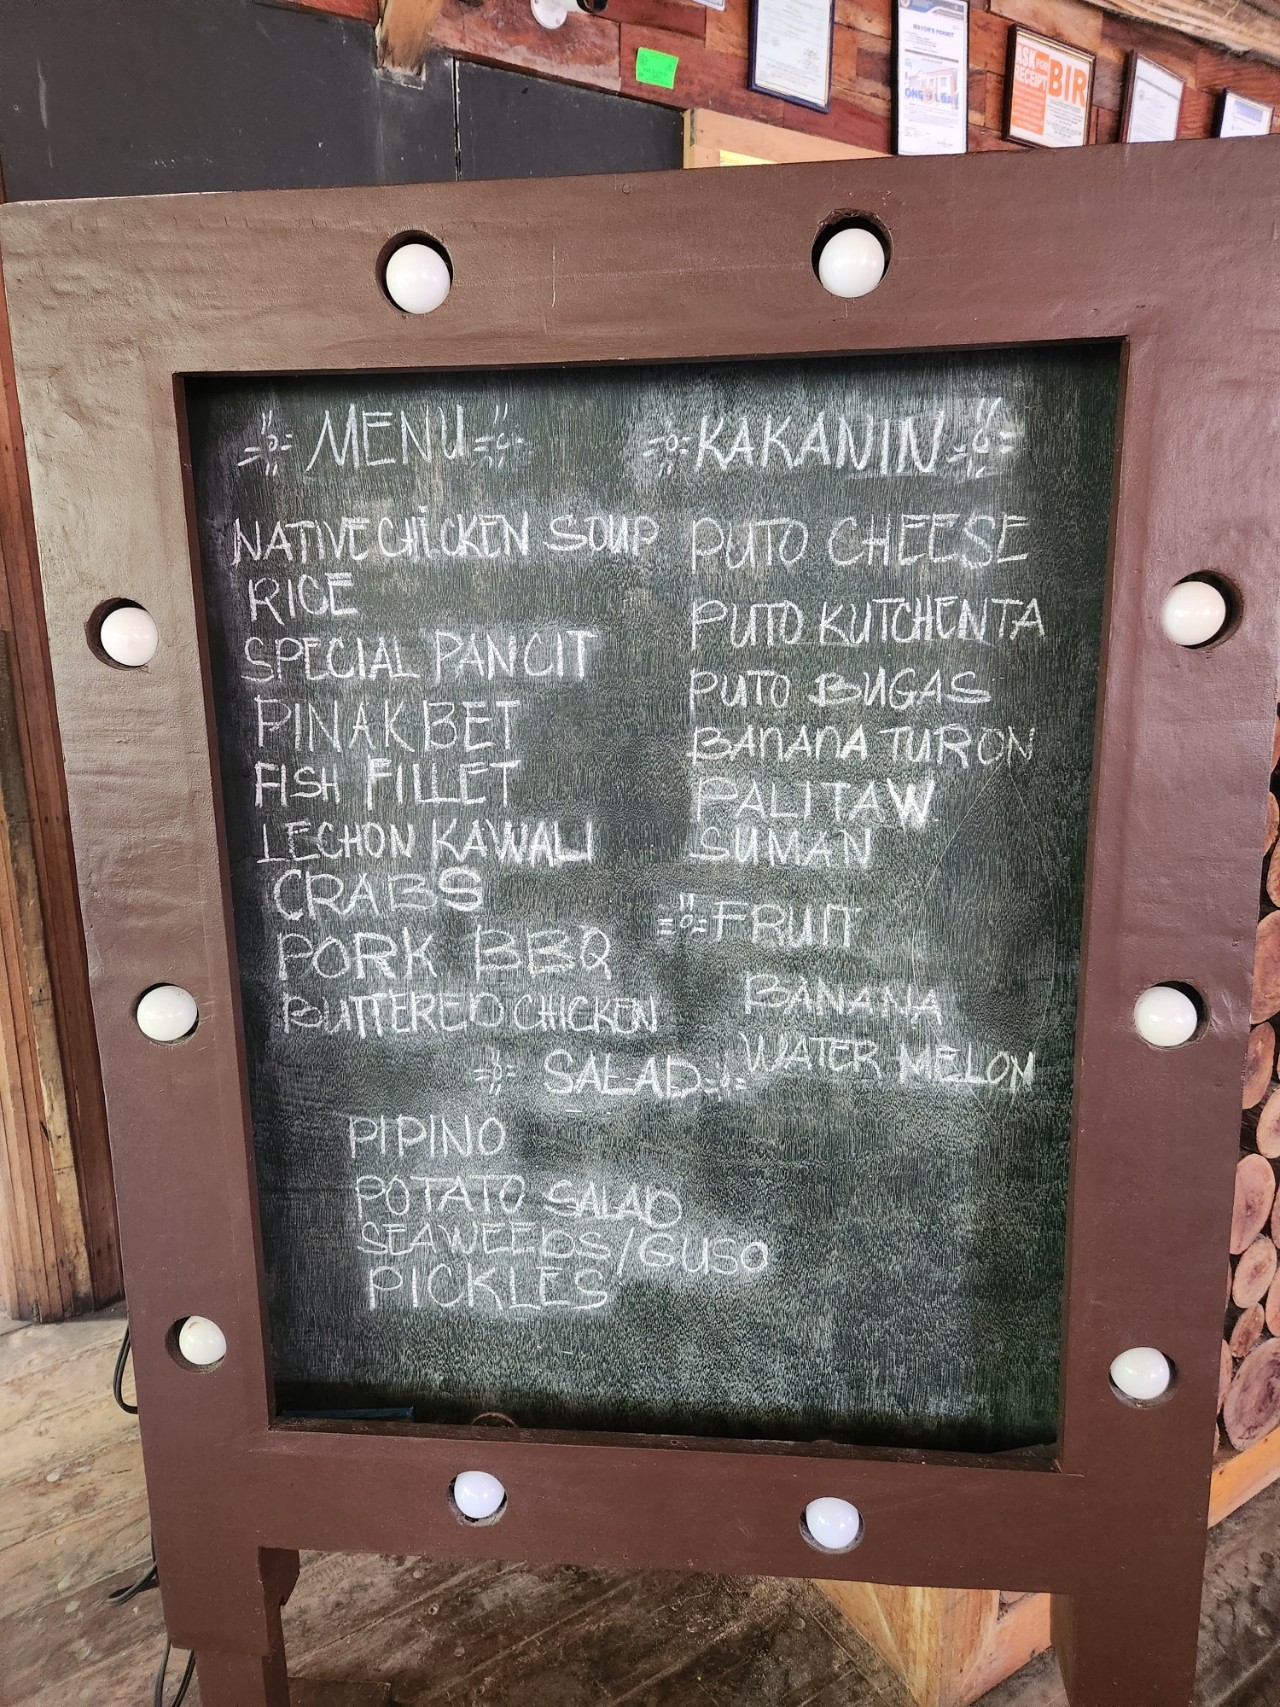 MAYOR'S PERMIT
ASK FOR
RECEIPT
BIR
MENU
NATIVE CHICKEN SOUP
RICE
SPECIAL PANCIT
PINAKBET
FISH FILLET
LECHON KAWALI
CRABS
PORK BBQ
BUTTERED CHICKEN
SALAD
PIPINO
POTATO SALAD
SEAWEEDS/GUSO
PICKLES
KAKANIN
PUTO CHEESE
PUTO KUTCHENTA
PUTO BUGAS
BANANA TURON
PALITAW
SUMAN
FRUIT
BANANA
WATER MELON